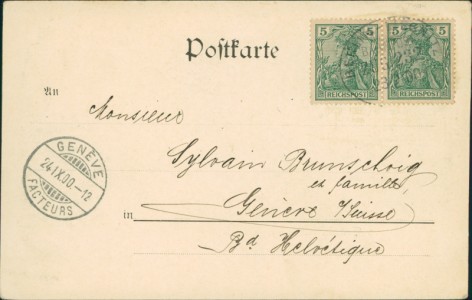 5 5 5 5
REICHSPOST REICHSPOST
Postkarte
An
Monsieur
GENÈVE
24.IX.00.-12
FACTEURS
Sylvain Brunschvig
et famille
in Genève /Suisse
Bd Helvétique